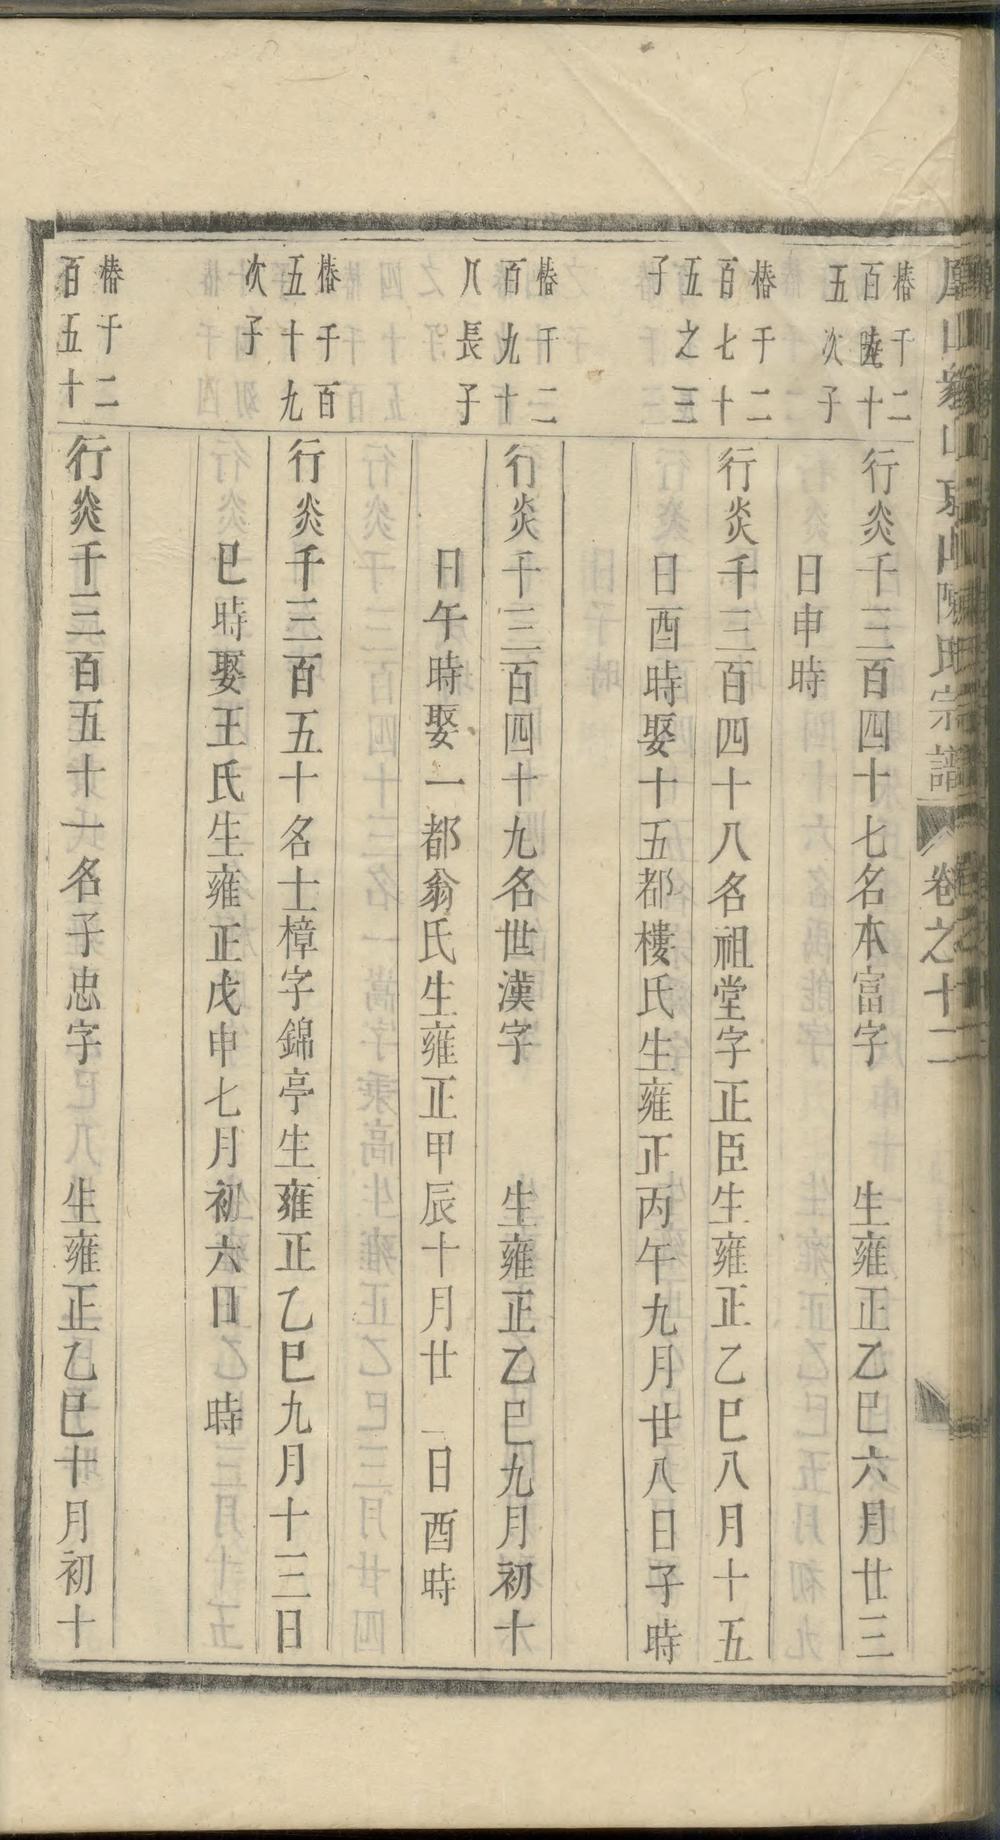 陳氏宗譜 卷之十二
椿千二
百 十
五次子
行炎千三百四十七名本富字 生雍正乙巳六月廿三
日申時
椿千二
百七十
五之三
子
行炎千三百四十八名祖堂字正臣生雍正乙巳八月十五
日酉時娶十五都樓氏生雍正丙午九月廿八日子時
椿千二
百九十
八長子
行炎千三百四十九名世漢字 生雍正乙巳九月初十
日午時娶一都翁氏生雍正甲辰十月廿一日酉時
椿千百
五十九
次子
行炎千三百五十名士樟字錦亭生雍正乙巳九月十三日
巳時娶王氏生雍正戊申七月初六日 時
椿千二
百五十
行炎千三百五十一名子忠字 生雍正乙巳十月初十